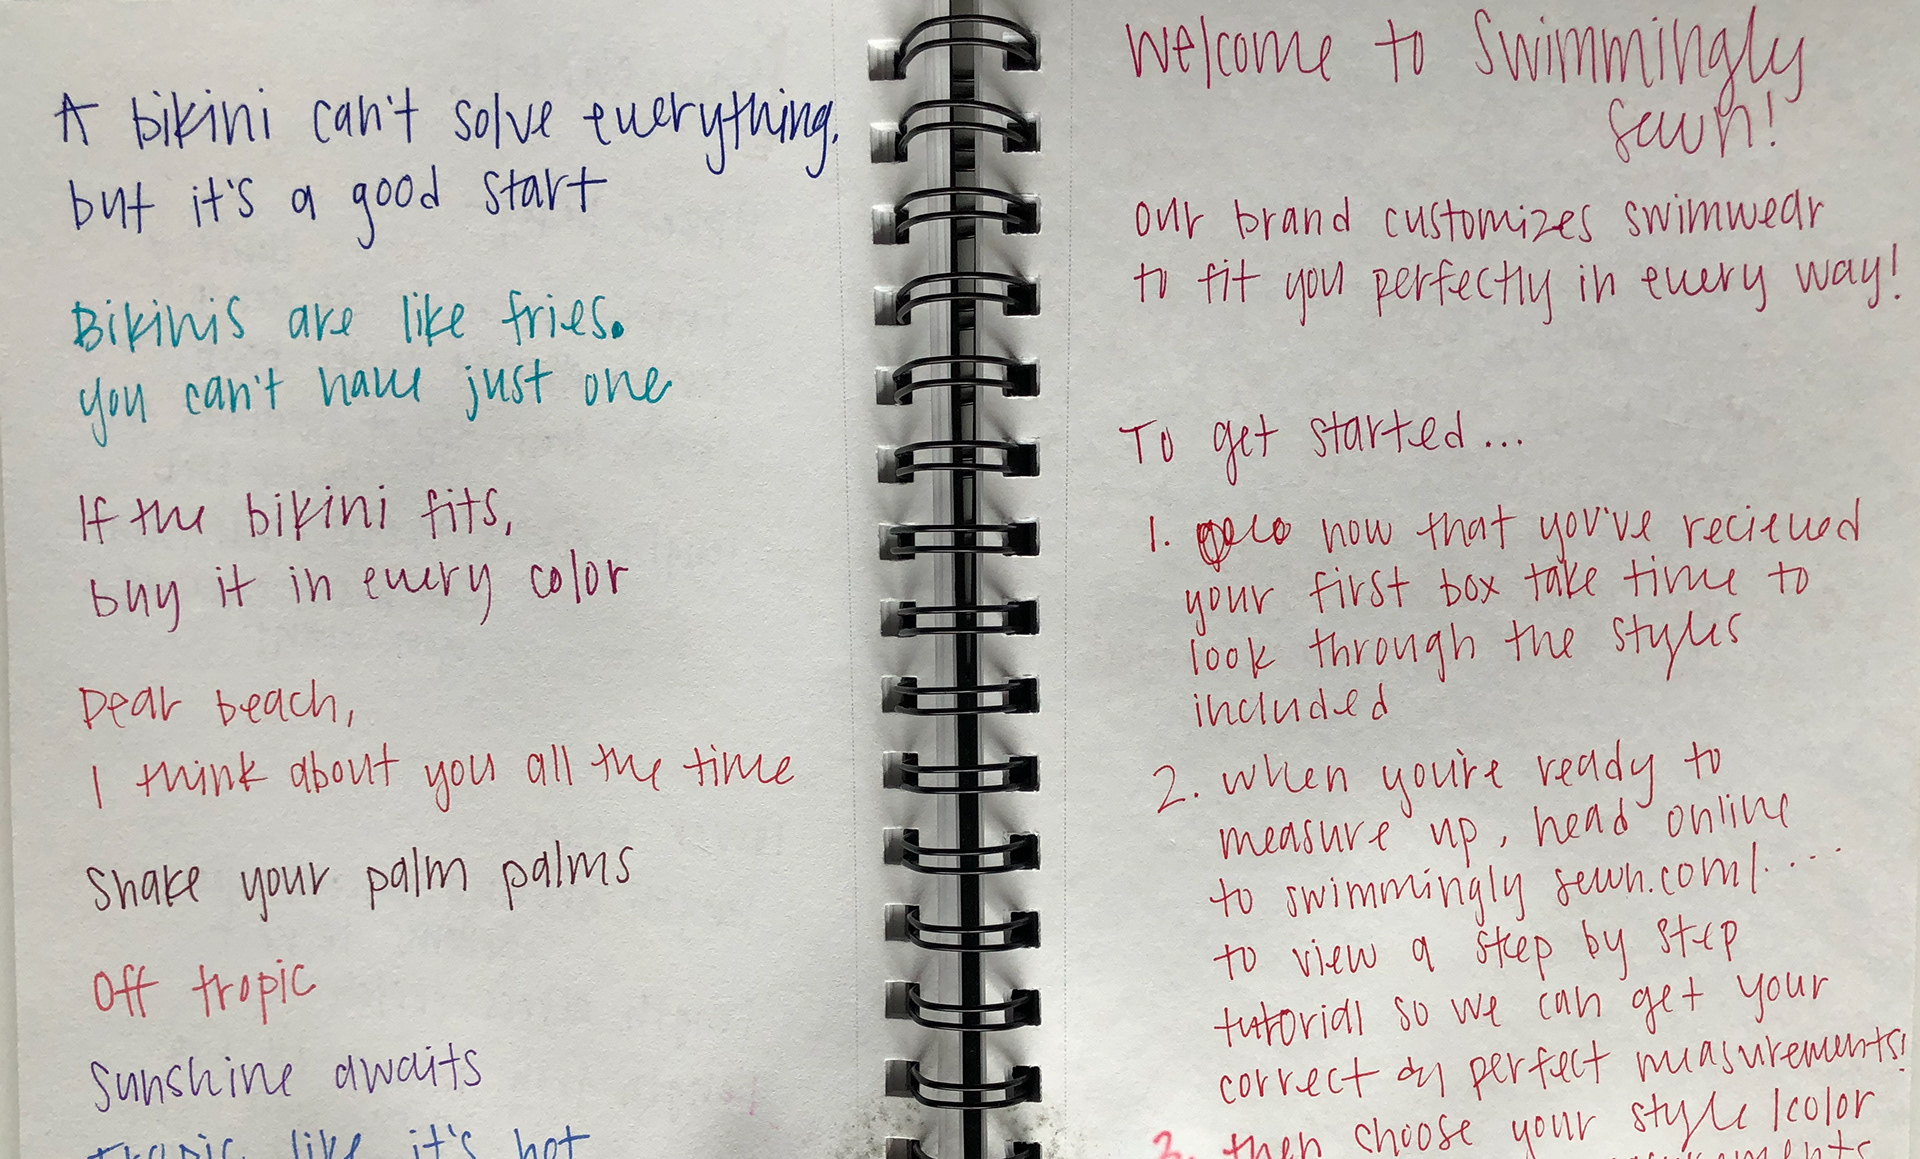 A bikini can't solve everything,
but it's a good start
Bikinis are like fries.
you can't have just one
If the bikini fits,
buy it in every color
Dear beach,
I think about you all the time
Shake your palm palms
Off tropic
Sunshine awaits
Tropic like it's hot
Welcome to Swimmingly
Sewn!
our brand customizes swimwear
to fit you perfectly in every way!
To get started...
1. now that you've recieved
your first box take time to
look through the styles
included
2. when you're ready to
measure up, head online
to swimmingly sewn.com/....
to view a step by step
tutorial so we can get your
correct perfect measurements!
3. then choose your style/color